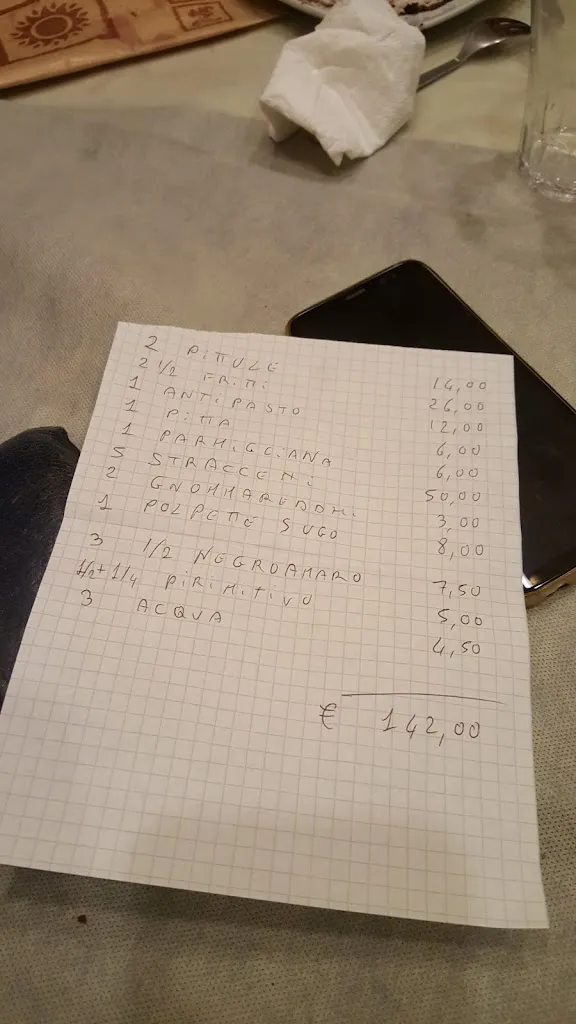 2 PITTULE 14,00
2 1/2 FRITTI 26,00
1 ANTIPASTO 12,00
1 PITTA 6,00
1 PARMIGGIANA 6,00
5 STRACCETTI 50,00
2 GNOMMAREDDHI 3,00
1 POLPETTE SUGO 8,00
3 1/2 NEGROAMARO 7,50
1/2+1/4 PIRIMITIVO 5,00
3 ACQUA 4,50
€ 142,00